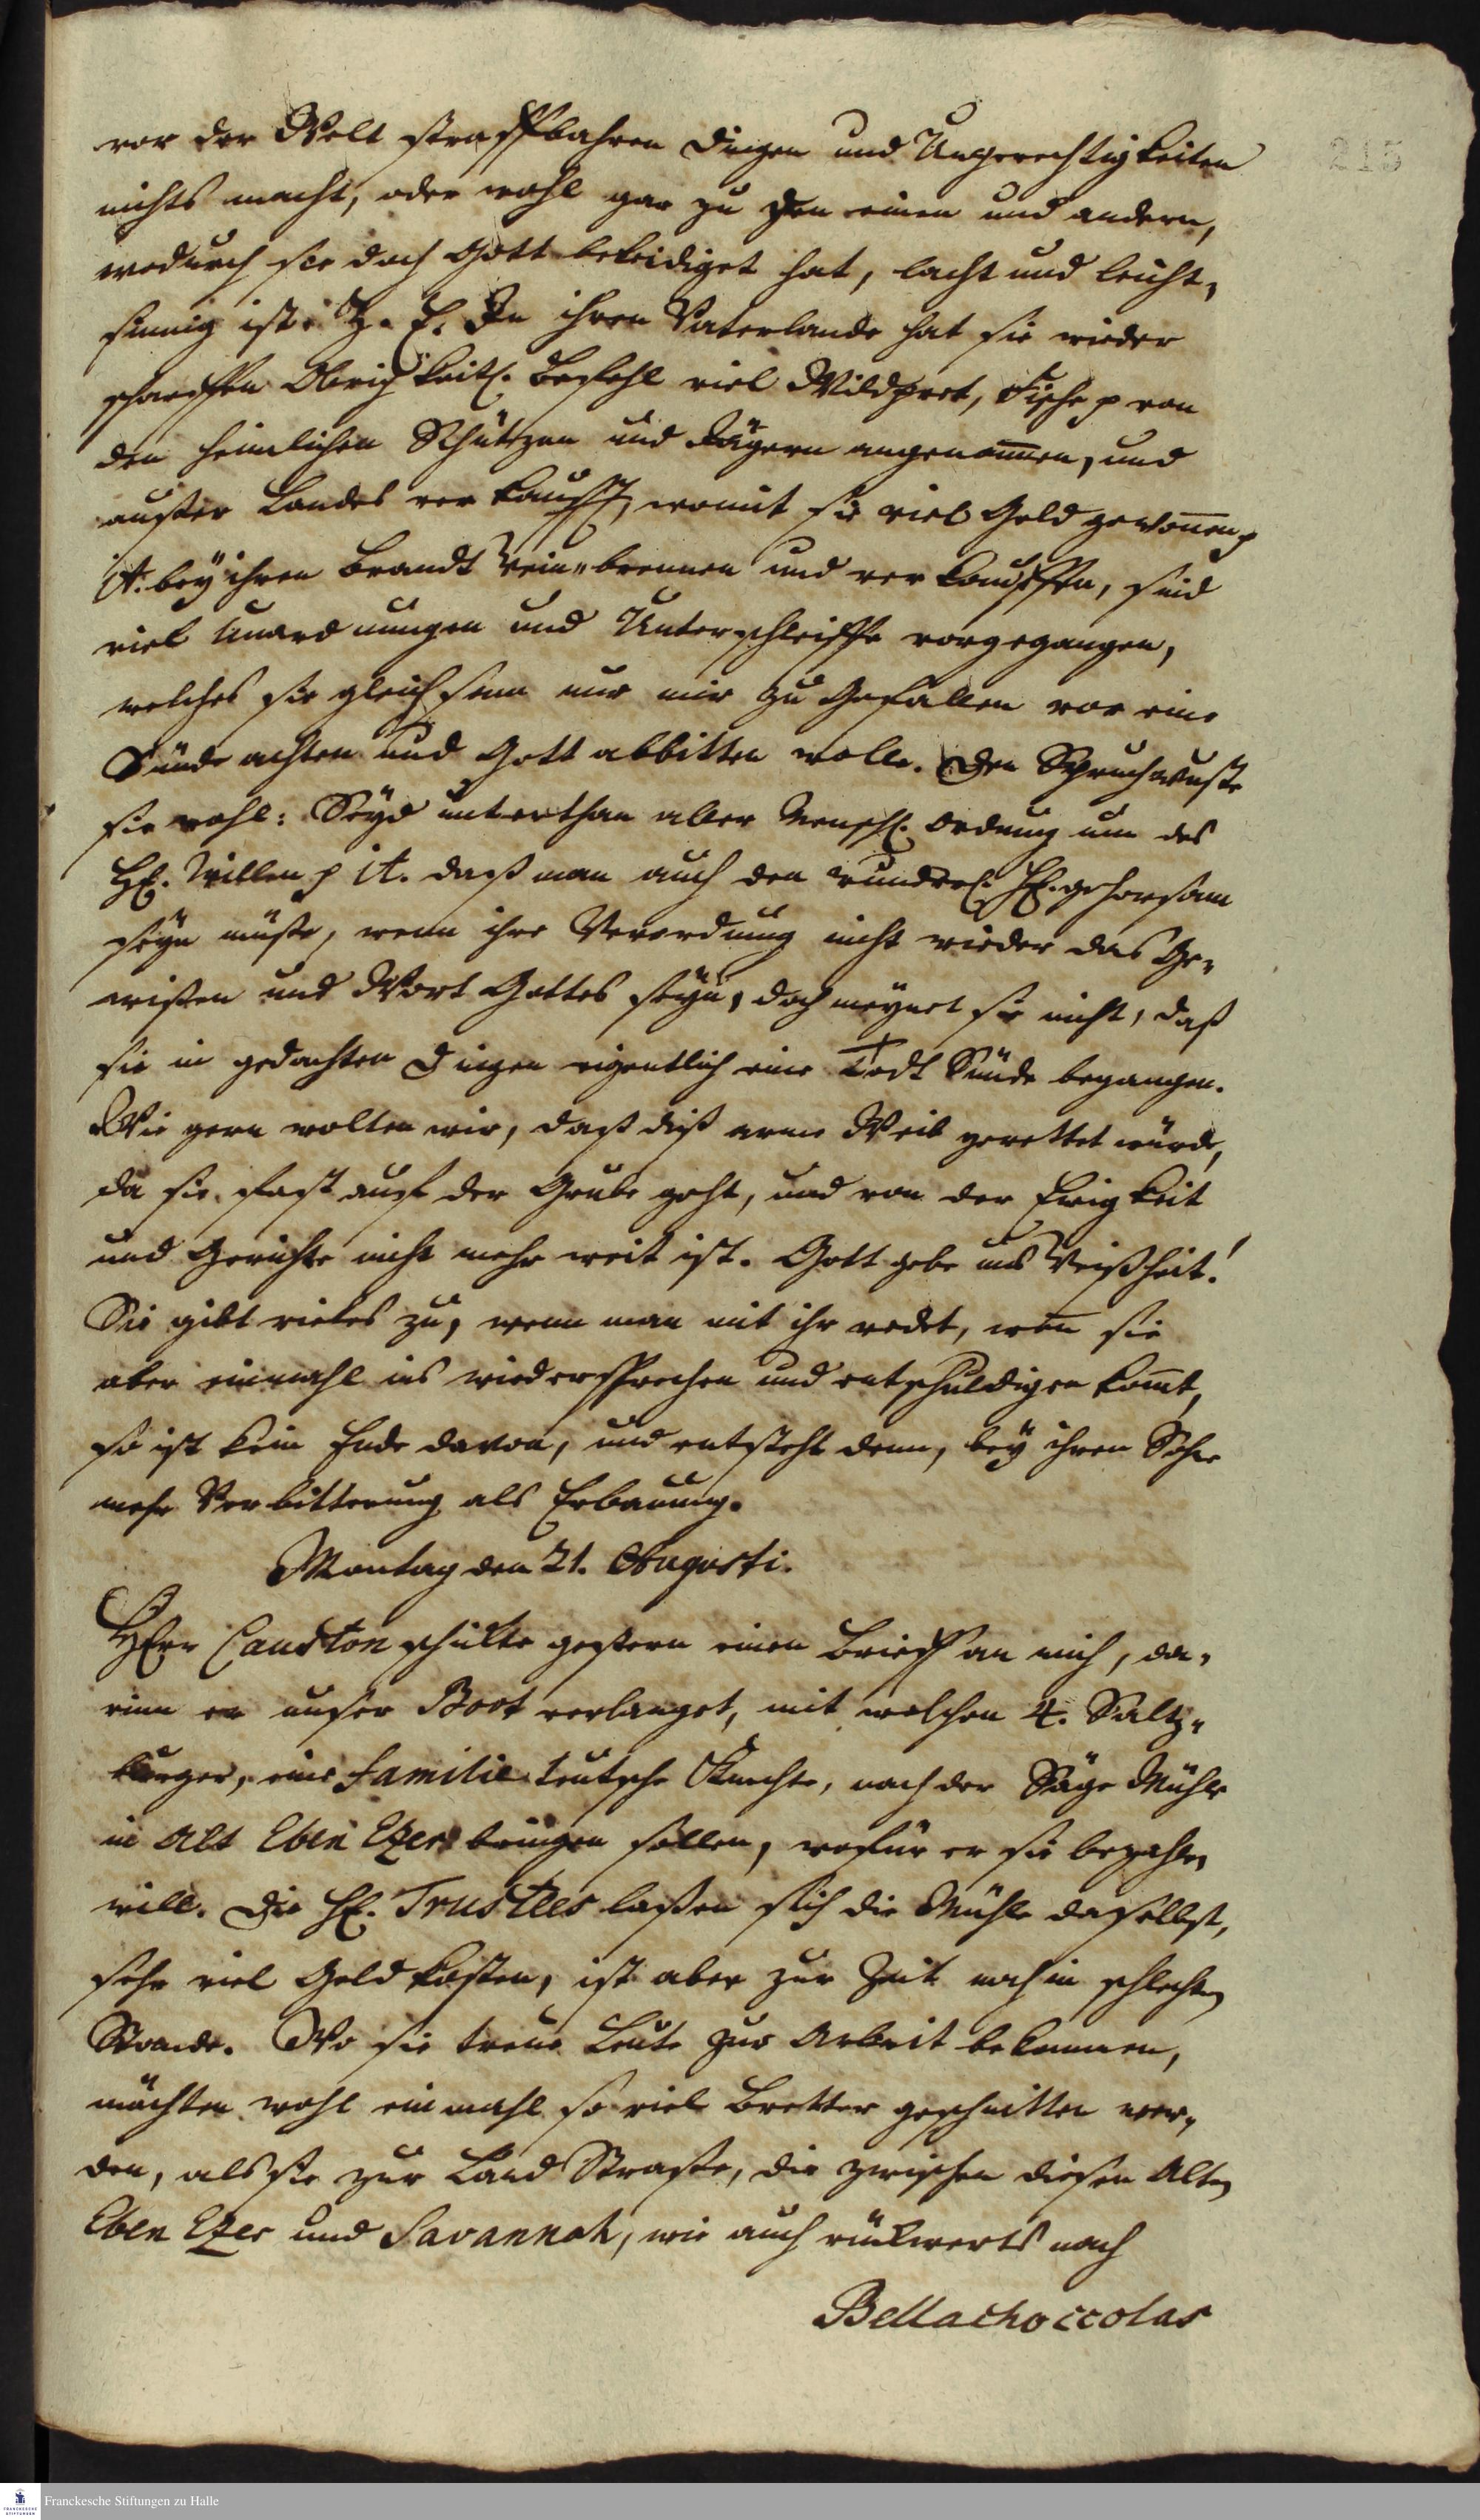 215
vor der Welt straffbahren Dingen und Ungerechtigkeiten
nichts macht, oder wohl gar zu den einen und andern,
wodurch sie doch Gott beleidiget hat, lacht und leicht-
sinnig ist. Z. E. In ihren Vaterlande hat sie wieder
scharffen Obrigkeitl. Befehl viel Wildpret, Fische p von
den heimlichen Schützen und Jägern angenommen, und
außer Landes verkaufft, womit sie viel Geld gewonnen p
it. bey ihren Brandtwein-brennen und verkauffen, sind
viel Unordnungen und Unterschleiffe vorgegangen,
welches sie gleichsam nur mir zu Gefallen vor eine
Sünde achten und Gott abbitten wolle. Den Spruch wuste
sie wohl: Seyd unterthan aller Menschl. Ordnung um des
HE. willen p it. daß man auch den wunderl. HE. gehorsam
seyn müste, wenn ihre Verordnung nicht wieder das Ge-
wißen und Wort Gottes seyn, doch meynet sie nicht, daß
sie in gedachten Dingen eigentlich eine Todt Sünde begangen.
Wie gern wolten wir, daß diß arme Weib gerettet würde,
da sie fast auf der Grube geht, und von der Ewigkeit
und Gerichte nicht mehr weit ist. Gott gebe uns Weißheit!
Sie gibt vieles zu, wenn man mit ihr redet, wen sie
aber einmahl ins wiedersprechen und entschuldigen komt,
so ist kein Ende davon, und entsteht denn, bey ihren Sohn
mehr Verbitterung als Erbauung.
Montag den 21. Augusti.
HErr Causton schickte gestern einen Brieff an mich, da-
rinn er unser Boot verlanget, mit welchen 4. Saltz-
burger, eine Familie teutsche Knechte, nach der Säge Mühle
in Alt Eben Ezer bringen sollen, wofür er sie bezahlen
will. Die HE. Trustees laßen sich die Mühle daselbst,
sehr viel Geld kosten, ist aber zur Zeit noch in schlechten
Stande. Wo sie treue Leute zur Arbeit bekommen,
möchten wohl einmahl so viele Bretter geschnitten wer-
den, als sie zur Land Straße, die zwischen diesen Alten
Eben Ezer und Savannah, wie auch rückwerts nach
Bellachoccolas
Franckesche Stiftungen zu Halle